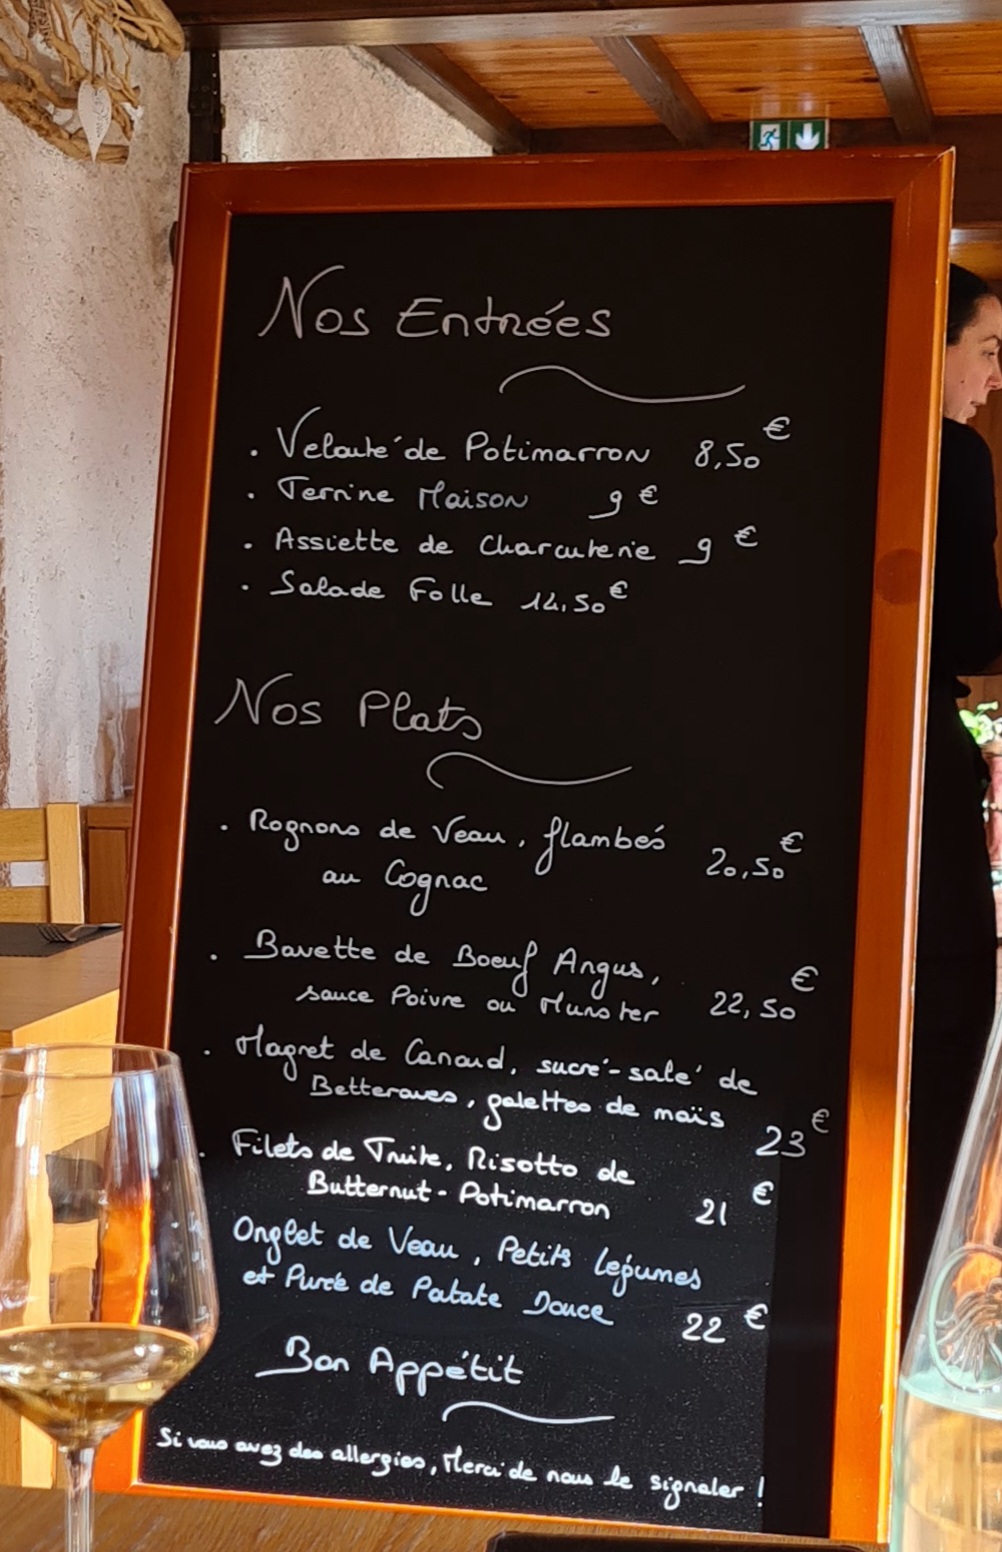 Nos Entrées
. Velouté de Potimarron 8,50 €
. Terrine Maison 9 €
. Assiette de Charcuterie 9 €
. Salade Folle 14,50 €
Nos Plats
. Rognons de Veau, flambés 20,50 €
au Cognac
. Bavette de Boeuf Angus,
sauce Poivre ou Munster 22,50 €
. Magret de Canard, sucré-salé de
Betteraves, galettes de maïs 23 €
. Filets de Truite, Risotto de
Butternut-Potimarron 21 €
Onglet de Veau, Petits légumes
et Purée de Patate Douce 22 €
Bon Appétit
Si vous avez des allergies, Merci de nous le signaler !